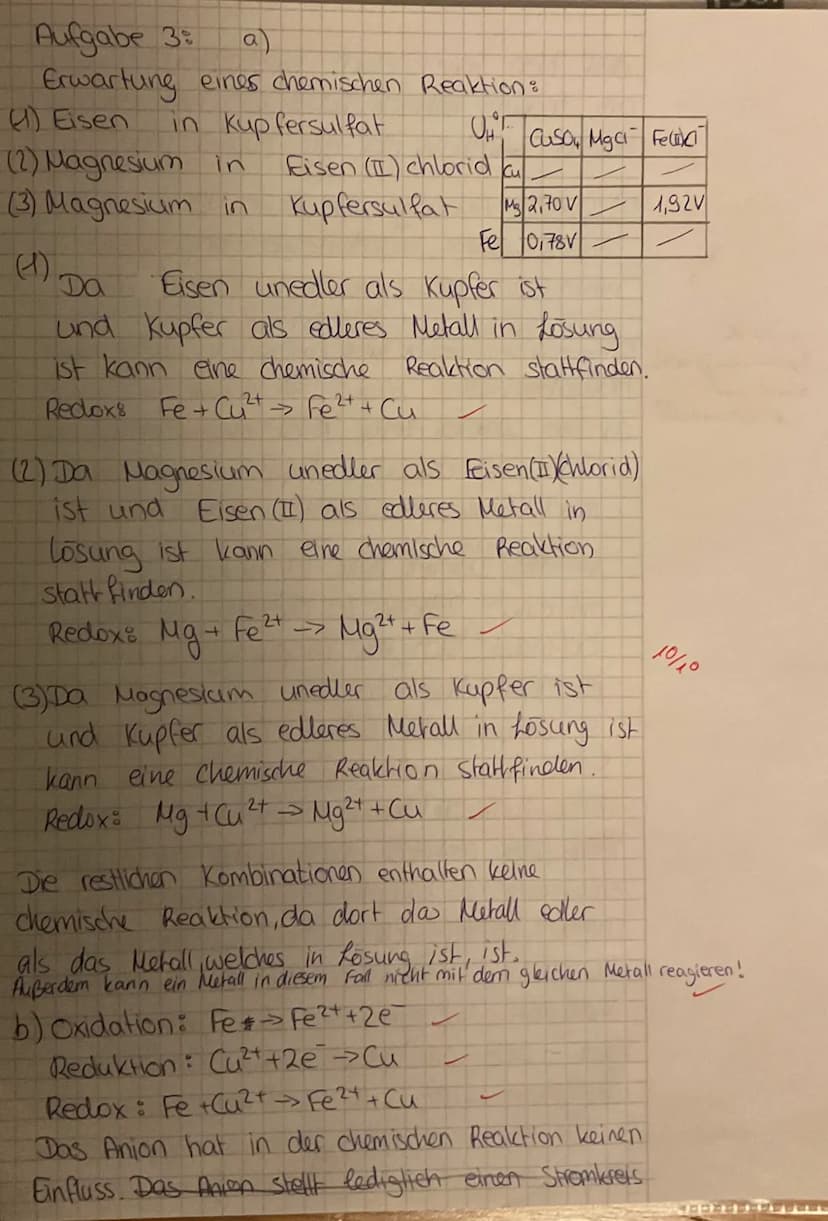 Aufgabe 3: a)
Erwartung eines chemischen Reaktion:
(1) Eisen in Kupfersulfat
(2) Magnesium in Eisen(II)chlorid
(3) Magnesium in Kupfersulfat
U_H^0 CuSO₄ MgCl⁻ Fe(II)Cl⁻
Cu — — —
Mg 2,70V — 1,92V
Fe 0,78V — —
(1) Da Eisen unedler als Kupfer ist
und Kupfer als edleres Metall in Lösung
ist kann eine chemische Reaktion stattfinden.
Redox: Fe + Cu²⁺ → Fe²⁺ + Cu ✓
(2) Da Magnesium unedler als Eisen(II)(chlorid)
ist und Eisen(II) als edleres Metall in
Lösung ist kann eine chemische Reaktion
stattfinden.
Redox: Mg + Fe²⁺ → Mg²⁺ + Fe ✓
10/10
(3) Da Magnesium unedler als Kupfer ist
und Kupfer als edleres Metall in Lösung ist
kann eine chemische Reaktion stattfinden.
Redox: Mg + Cu²⁺ → Mg²⁺ + Cu ✓
Die restlichen Kombinationen enthalten keine
chemische Reaktion, da dort das Metall edler
als das Metall, welches in Lösung ist, ist.
Außerdem kann ein Metall in diesem Fall nicht mit dem gleichen Metall reagieren! ✓
b) Oxidation: Fe → Fe²⁺ + 2e⁻ ✓
Reduktion: Cu²⁺ + 2e⁻ → Cu ✓
Redox: Fe + Cu²⁺ → Fe²⁺ + Cu ✓
Das Anion hat in der chemischen Reaktion keinen
Einfluss. Das Anion stellt lediglich einen Stromkreis